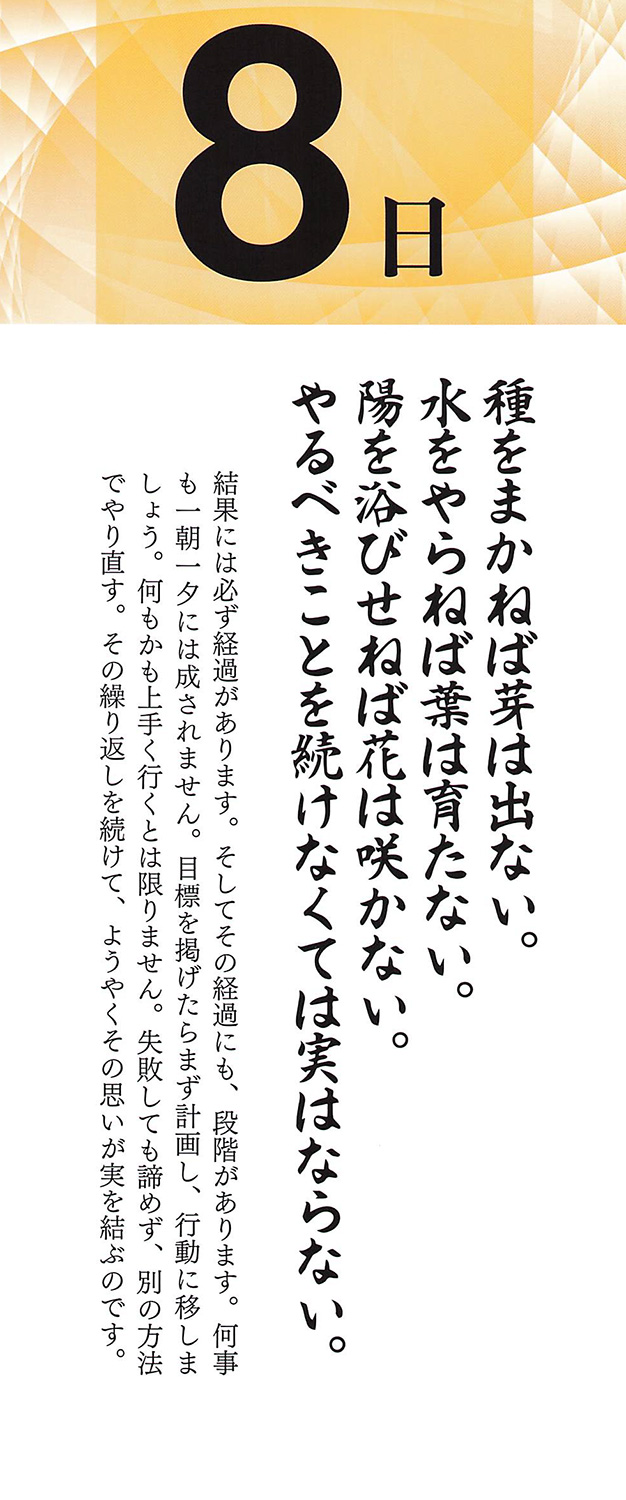 8日
種をまかねば芽は出ない。
水をやらねば葉は育たない。
陽を浴びせねば花は咲かない。
やるべきことを続けなくては実はならない。
結果には必ず経過があります。そしてその経過にも、段階があります。何事
も一朝一夕には成されません。目標を掲げたらまず計画し、行動に移しま
しょう。何もかも上手く行くとは限りません。失敗しても諦めず、別の方法
でやり直す。その繰り返しを続けて、ようやくその思いが実を結ぶのです。